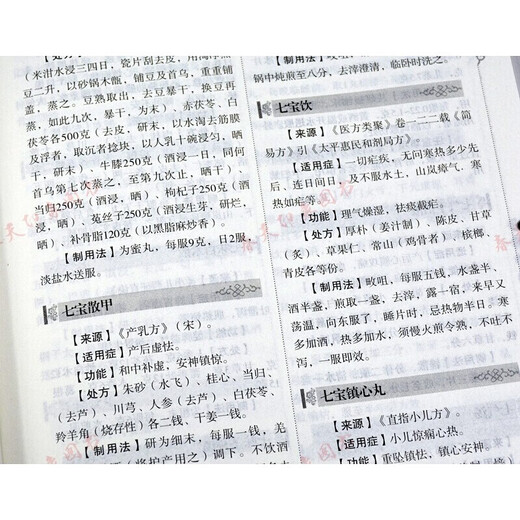 【处方】
（米泔水浸三四日，瓷片刮去皮，用淘净黑
豆二升，以砂锅木甑，铺豆及首乌，重重铺
盖，蒸之。豆熟取出，去豆暴干，换豆再
蒸，如此九次，暴干，为末）、赤茯苓、白茯
苓各500克（去皮，研末，以水淘去筋膜
及浮者，取沉者捻块，以人乳十碗浸匀，晒
干，研末）、牛膝250克（酒浸一日，同何
首乌第七次蒸之，至第九次止，晒干）、
当归250克（酒浸，晒）、枸杞子250克（酒
浸，晒）、菟丝子250克（酒浸生芽，研烂，
晒）、补骨脂120克（以黑脂麻炒香）。
【制用法】为蜜丸，每服9克，日2服，
淡盐水送服。
七宝散甲
【来源】《产乳方》（宋）。
【适用症】产后虚怯。
【功能】和中补虚，安神镇惊。
【处方】朱砂（水飞）、桂心、当归、
（去芦）、川芎、人参（去芦）、白茯苓、
羚羊角（烧存性）各二钱、干姜一钱。
【制用法】研为细末，每服一钱，羌
（将护产用之）调下。不饮酒
【制用法】㕮咀，
锅中炖煎至八分，去滓澄清，临卧时洗之。
七宝饮
【来源】《医方类聚》卷一二二载《简
易方》引《太平惠民和剂局方》。
【适用症】一切疟疾，无问寒热多少先
后、连日间日，及不服水土，山岚瘴气，寒
热如疟等。
【功能】理气燥湿，祛痰截疟。
【处方】厚朴（姜汁制）、陈皮、甘草
（炙）、草果仁、常山（鸡骨者）、槟榔、
青皮各等份。
【制用法】㕮咀，每服五钱，水盏半、
酒半盏，煎取一盏，去滓，露一宿，来早又
荡温，向东服了，睡片时，忌热物半日，寒
多加酒，热多加水，须慢火煎令熟，不吐不
泻，一服即效。
七宝镇心丸
【来源】《直指小儿方》。
【适用症】小儿惊痫心热。
【功能】重坠镇怯，镇心安神。